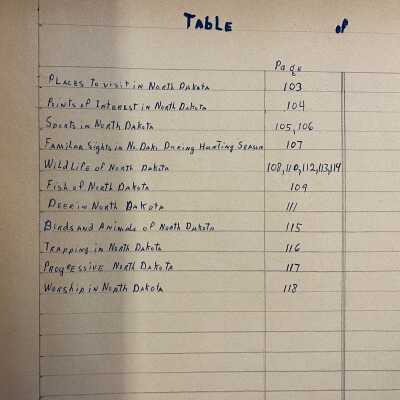 Table of
Page
Places to visit in North Dakota 103
Points of Interest in North Dakota 104
Sports in North Dakota 105, 106
Familiar Sights in No. Dak. During Hunting Season 107
Wild Life of North Dakota 108, 110, 112, 113, 114
Fish of North Dakota 109
Deer in North Dakota 111
Birds and Animals of North Dakota 115
Trapping in North Dakota 116
Progressive North Dakota 117
Worship in North Dakota 118